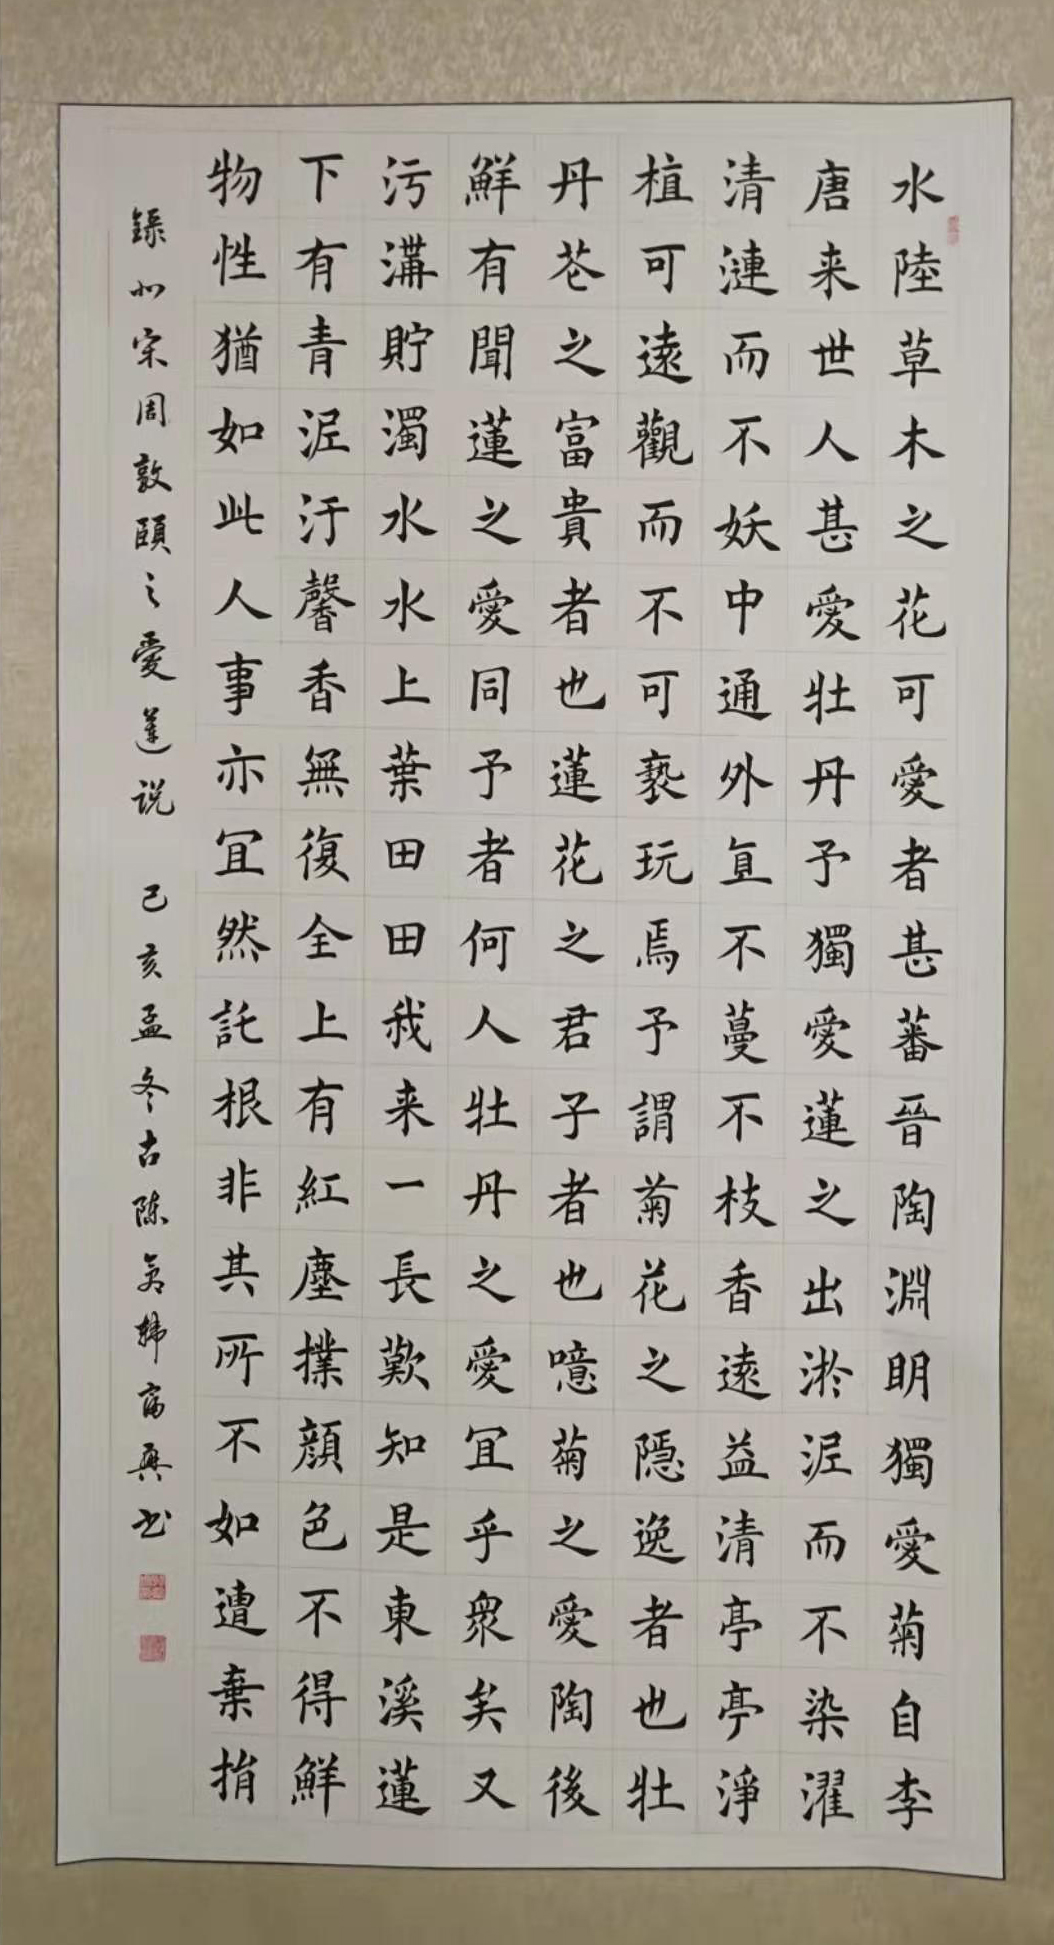 水陸草木之花可愛者甚蕃晉陶淵眀獨愛菊自李
唐来世人甚愛牡丹予獨愛蓮之出淤泥而不染濯
清漣而不妖中通外直不蔓不枝香遠益清亭亭淨
植可遠觀而不可褻玩焉予謂菊花之隱逸者也牡
丹芲之富貴者也蓮花之君子者也噫菊之愛陶後
鮮有聞蓮之愛同予者何人牡丹之愛宜乎衆矣又
污溝貯濁水水上葉田田我来一長歎知是東溪蓮
下有青泥汙馨香無復全上有紅塵撲顔色不得鮮
物性猶如此人事亦宜然託根非其所不如遭棄捐
錄北宋周敦頤之愛蓮说 己亥孟冬古陈倉韩富興书